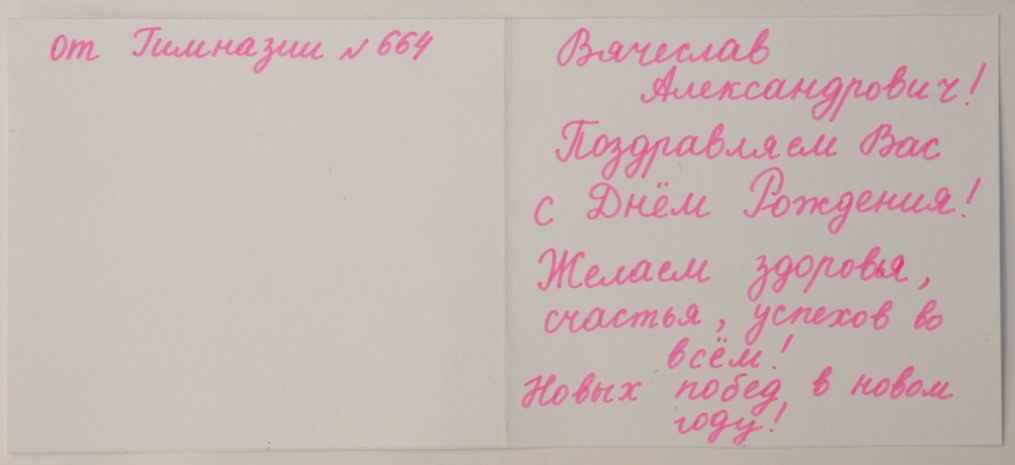 от Гимназии N 664
Вячеслав
Александрович!
Поздравляем Вас
с Днём Рождения!
Желаем здоровья,
счастья, успехов во
всём!
Новых побед в новом
году!